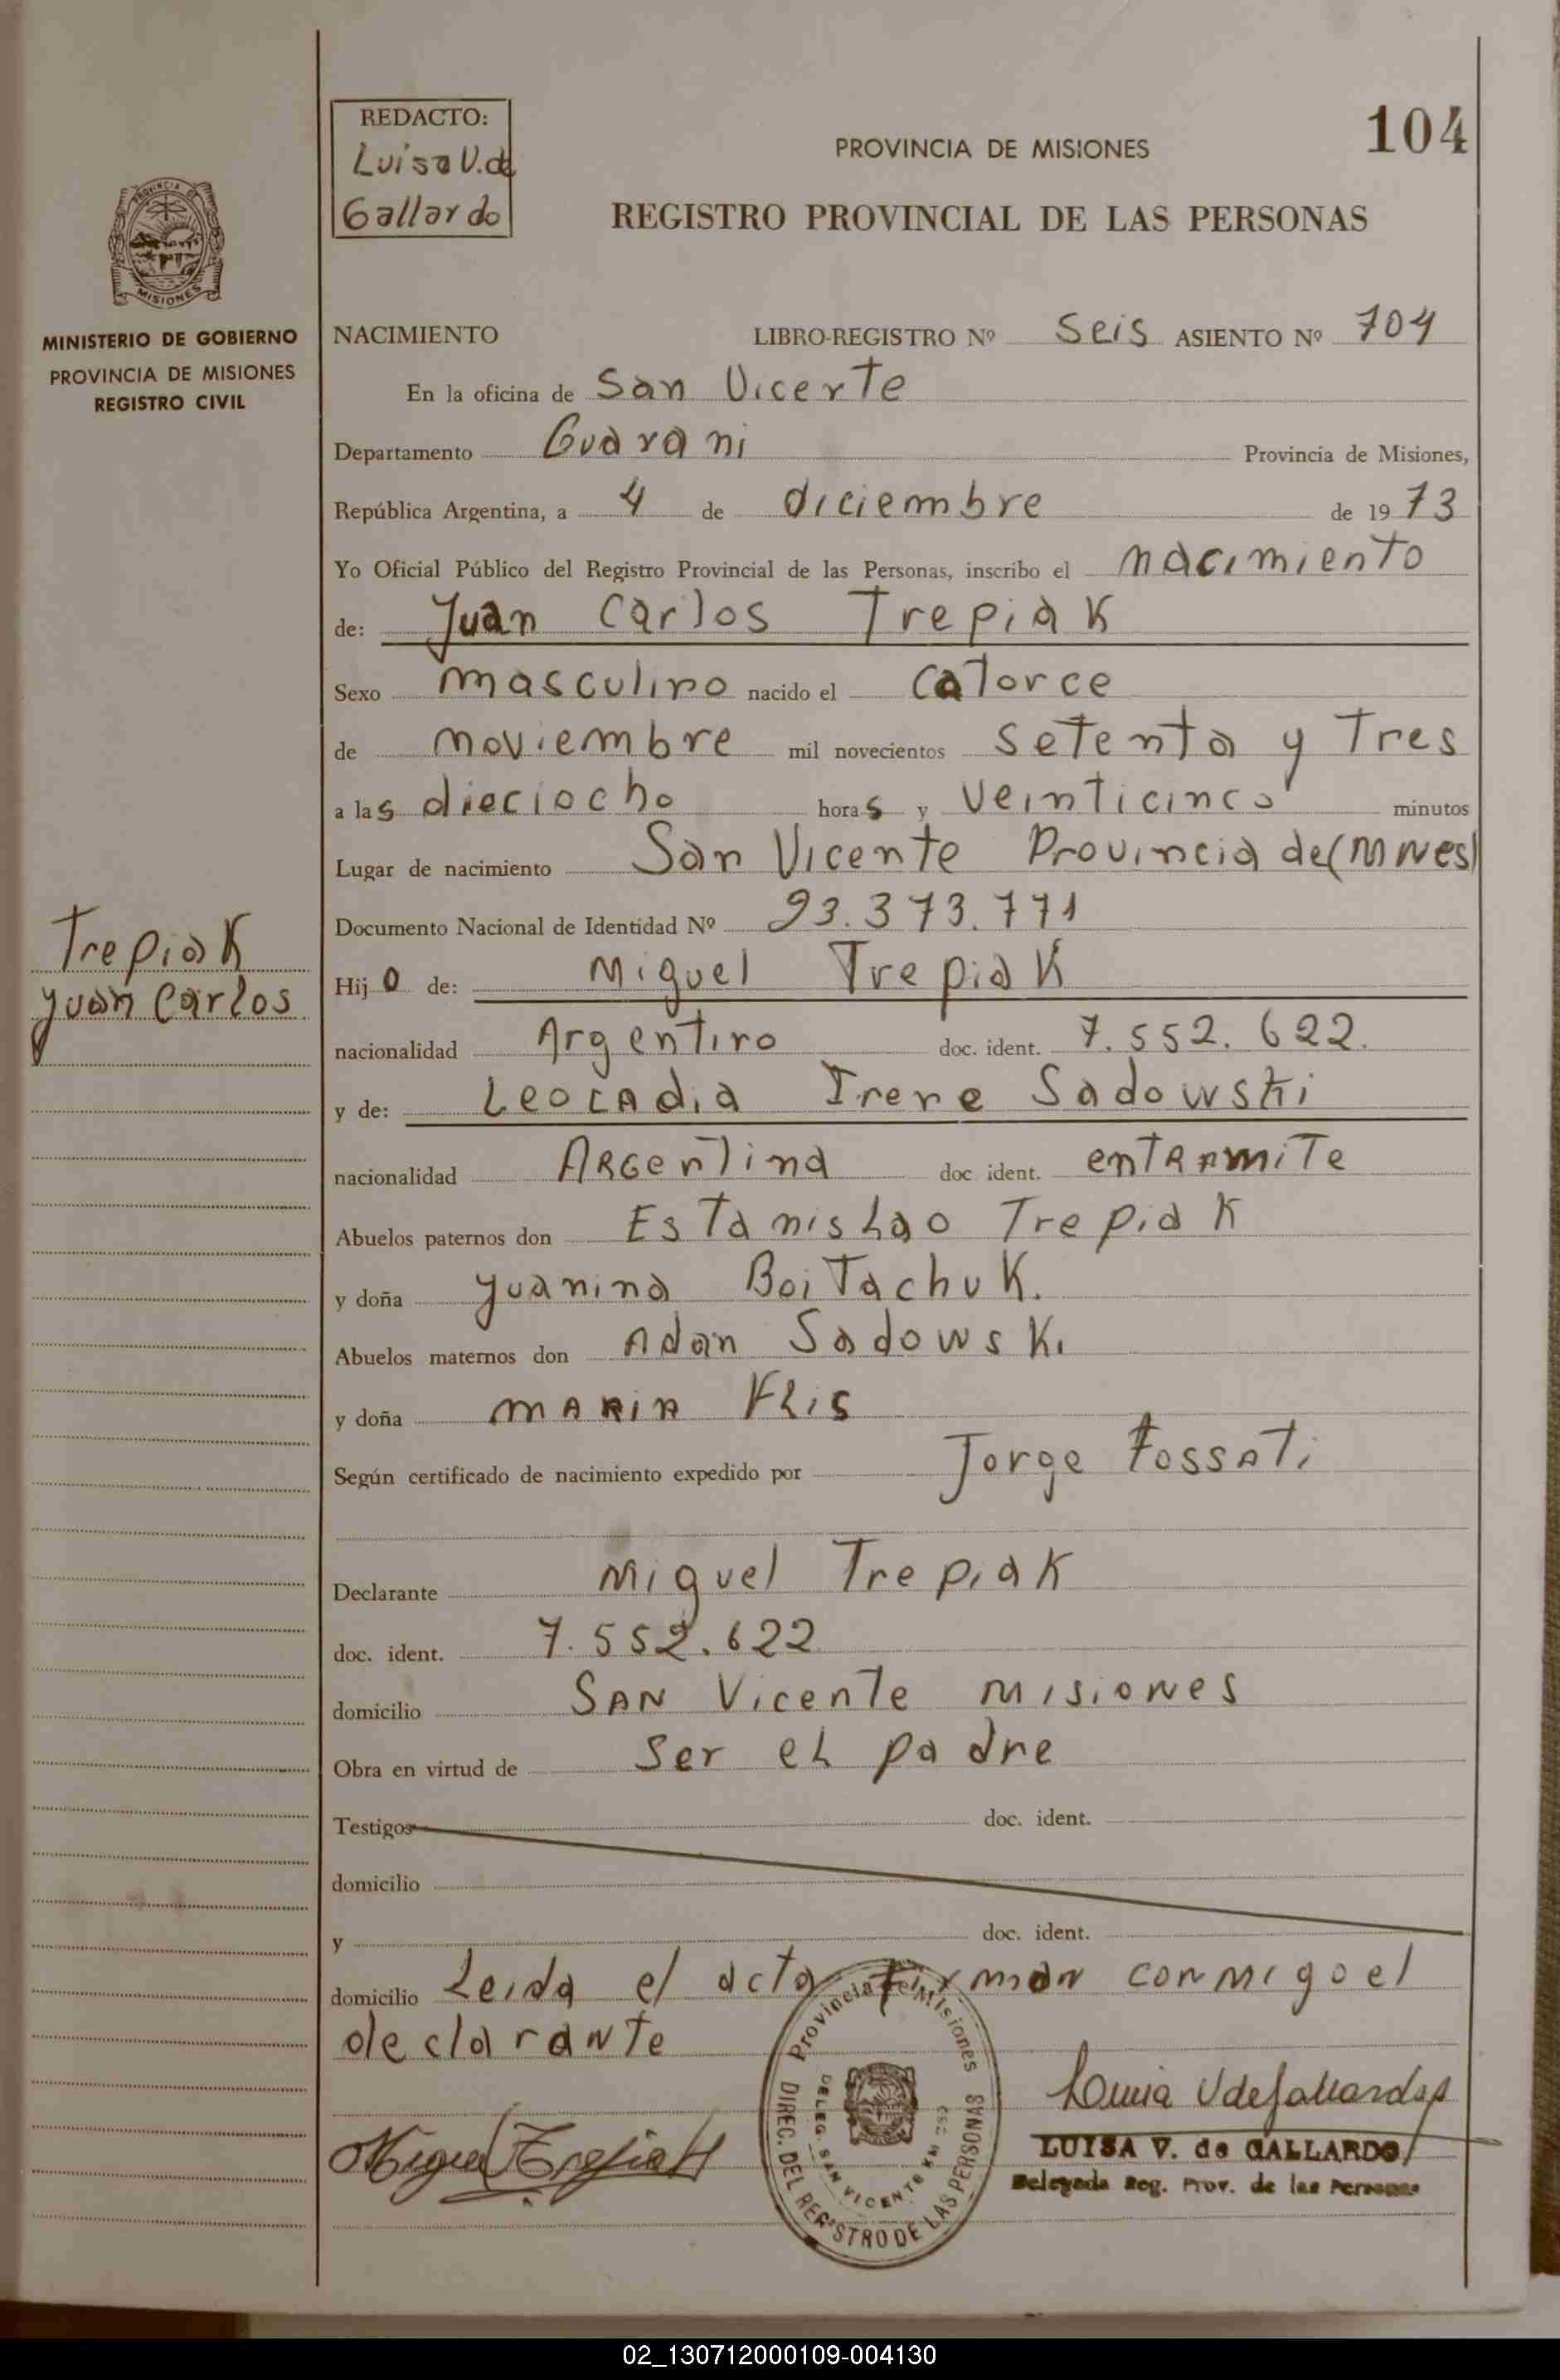 REDACTO:
Luisa V. de
Gallardo
104
PROVINCIA DE MISIONES
REGISTRO PROVINCIAL DE LAS PERSONAS
PROVINCIA DE
MISIONES
MINISTERIO DE GOBIERNO
PROVINCIA DE MISIONES
REGISTRO CIVIL
NACIMIENTO LIBRO-REGISTRO Nº Seis ASIENTO Nº 704
En la oficina de San Vicente
Departamento Guarani Provincia de Misiones,
República Argentina, a 4 de diciembre de 19 73
Yo Oficial Público del Registro Provincial de las Personas, inscribo el nacimiento
de: Juan Carlos Trepiak
Sexo masculino nacido el catorce
de noviembre mil novecientos setenta y Tres
a las dieciocho horas y veinticinco minutos
Lugar de nacimiento San Vicente Provincia de (MNes)
Documento Nacional de Identidad Nº 23.373.771
Trepiak
Juan Carlos
Hijo de: Miguel Trepiak
nacionalidad Argentino doc. ident. 7.552.622.
y de: Leocadia Irene Sadowski
nacionalidad Argentina doc ident. entramite
Abuelos paternos don Estanislao Trepiak
y doña Juanina Boitachuk.
Abuelos maternos don Adan Sadowski
y doña Maria Flis
Según certificado de nacimiento expedido por Jorge Fossati
Declarante Miguel Trepiak
doc. ident. 7.552.622
domicilio San Vicente Misiones
Obra en virtud de ser el padre
Testigos doc. ident.
domicilio
y doc. ident.
domicilio Leida el acta firman conmigo el
declarante
Provincia de Misiones
DIREC. DEL REGISTRO DE LAS PERSONAS
DELEG. SAN VICENTE KM
Miguel Trepiak
Luisa V de Gallardo
LUISA V. de GALLARDO
Delegada Reg. Prov. de las Personas
02_130712000109-004130